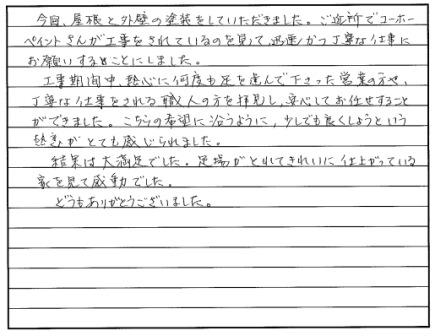 今回、屋根と外壁の塗装をしていただきました。ご近所でユーホー
ペイントさんが工事をされているのを見て、迅速かつ丁寧な仕事に
お願いすることにしました。
工事期間中、熱心に何度も足を運んで下さった営業の方や、
丁寧な仕事をされる職人の方を拝見し、安心してお任せすること
ができました。こちらの希望に沿うように、少しでも良くしようという
熱意がとても感じられました。
結果は大満足でした。足場がとれてきれいに仕上がっている
家を見て感動でした。
どうもありがとうございました。